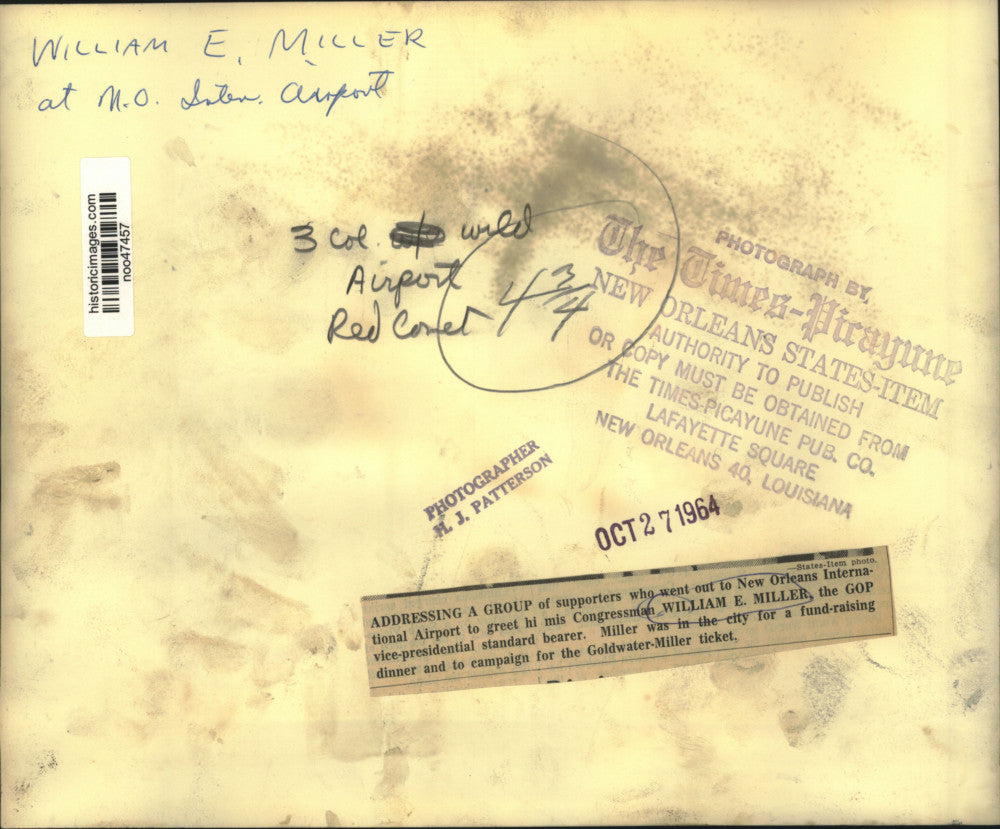 WILLIAM E. MILLER
at N.O. Inter. Airport
historicimages.com
noo47457
3 Col. wild
Airport
Red Comet
4 3/4
PHOTOGRAPH BY,
The Times-Picayune
NEW ORLEANS STATES-ITEM
AUTHORITY TO PUBLISH
OR COPY MUST BE OBTAINED FROM
THE TIMES-PICAYUNE PUB. CO.
LAFAYETTE SQUARE
NEW ORLEANS 40, LOUISIANA
PHOTOGRAPHER
H. J. PATTERSON
OCT 27 1964
—States-Item photo.
ADDRESSING A GROUP of supporters who went out to New Orleans Interna-
tional Airport to greet hi mis Congressman WILLIAM E. MILLER, the GOP
vice-presidential standard bearer. Miller was in the city for a fund-raising
dinner and to campaign for the Goldwater-Miller ticket.